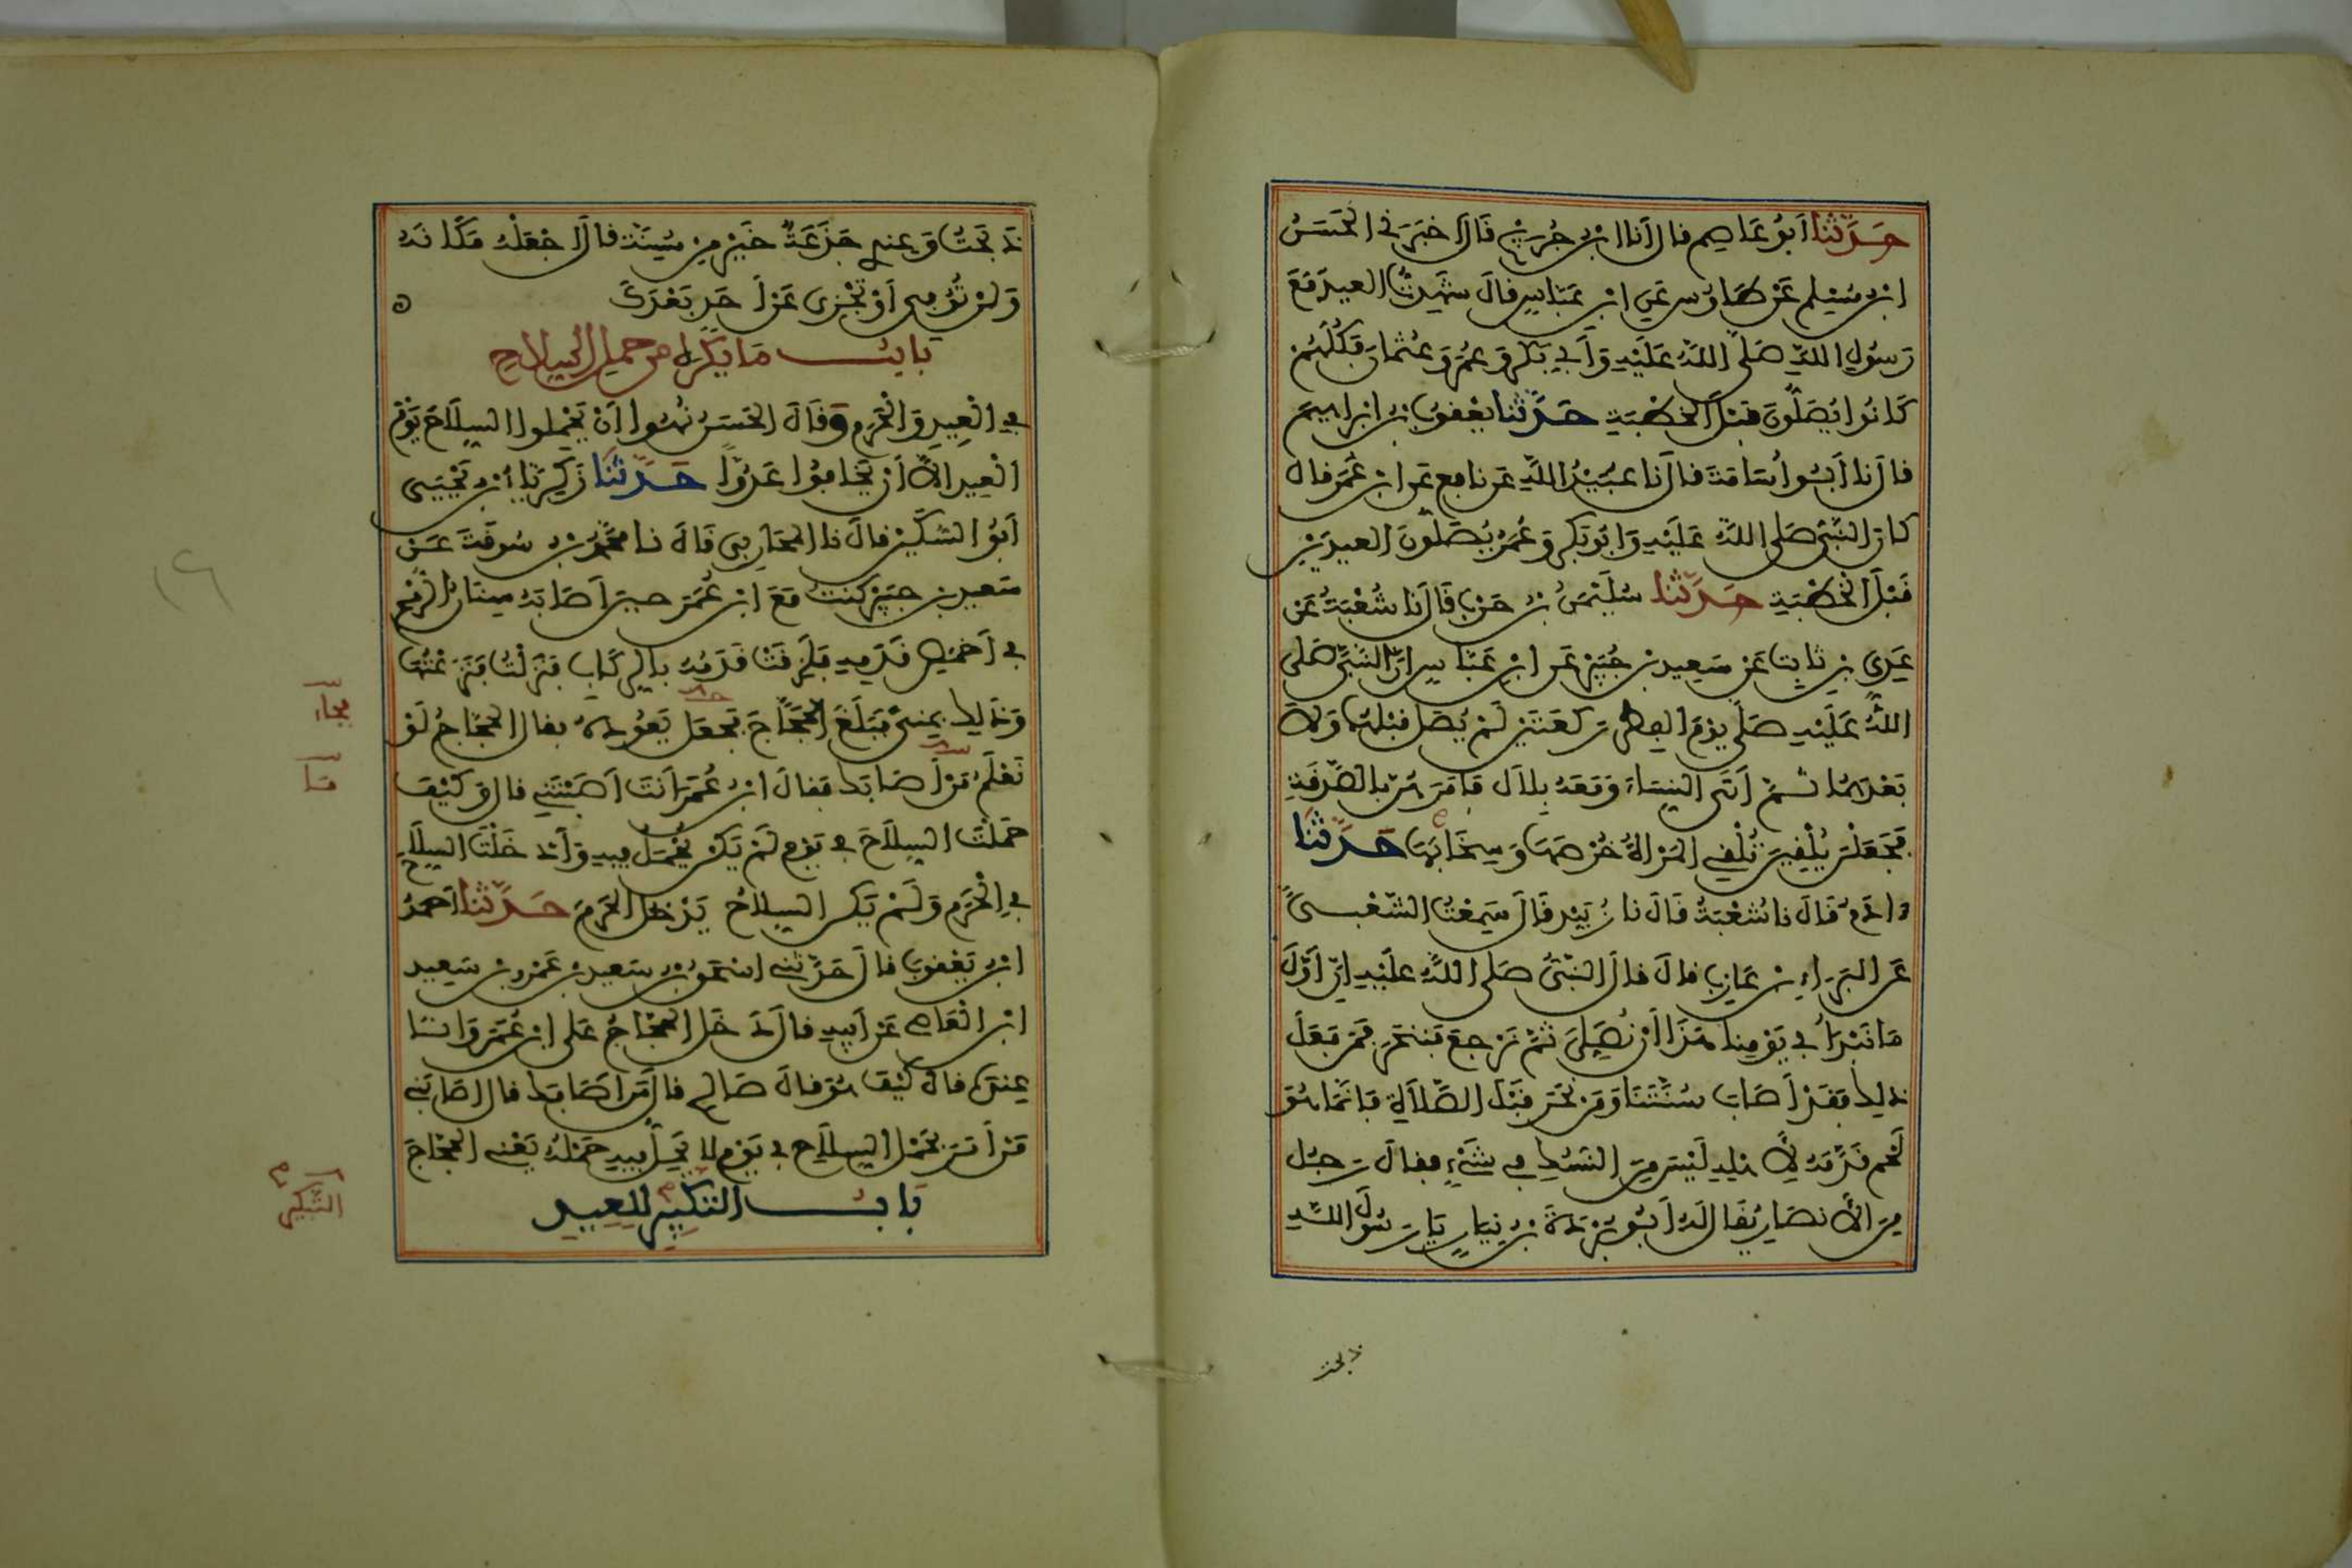 حَدَّثَنَا أَبُو عَاصِمٍ قَالَ أَنَا ابْنُ جُرَيْجٍ قَالَ أَخْبَرَنِي الْحَسَنُ
ابْنُ مُسْلِمٍ عَنْ طَاوُسٍ عَنِ ابْنِ عَبَّاسٍ قَالَ شَهِدْتُ الْعِيدَ مَعَ
رَسُولِ اللَّهِ صَلَّى اللَّهُ عَلَيْهِ وَأَبِي بَكْرٍ وَعُمَرَ وَعُثْمَانَ فَكُلُّهُمْ
كَانُوا يُصَلُّونَ قَبْلَ الْخُطْبَةِ حَدَّثَنَا يَعْقُوبُ بْنُ إِبْرَاهِيمَ
قَالَ نَا أَبُو أُسَامَةَ قَالَ نَا عُبَيْدُ اللَّهِ عَنْ نَافِعٍ عَنِ ابْنِ عُمَرَ قَالَ
كَانَ النَّبِيُّ صَلَّى اللَّهُ عَلَيْهِ وَأَبُو بَكْرٍ وَعُمَرُ يُصَلُّونَ الْعِيدَيْنِ
قَبْلَ الْخُطْبَةِ حَدَّثَنَا سُلَيْمَنُ بْنُ حَرْبٍ قَالَ نَا شُعْبَةُ عَنْ
عَدِيِّ بْنِ ثَابِتٍ عَنْ سَعِيدِ بْنِ جُبَيْرٍ عَنِ ابْنِ عَبَّاسٍ أَنَّ النَّبِيَّ صَلَّى
اللَّهُ عَلَيْهِ صَلَّى يَوْمَ الْفِطْرِ رَكْعَتَيْنِ لَمْ يُصَلِّ قَبْلَهَا وَلَا
بَعْدَهَا ثُمَّ أَتَى النِّسَاءَ وَمَعَهُ بِلَالٌ فَأَمَرَهُنَّ بِالصَّدَقَةِ
فَجَعَلْنَ يُلْقِينَ تُلْقِي الْمَرْأَةُ خُرْصَهَا وَسِخَابَهَا حَدَّثَنَا
ءَادَمُ قَالَ نَا شُعْبَةُ قَالَ نَا زُبَيْدٌ قَالَ سَمِعْتُ الشَّعْبِيَّ
عَنِ الْبَرَاءِ بْنِ عَازِبٍ قَالَ قَالَ النَّبِيُّ صَلَّى اللَّهُ عَلَيْهِ إِنَّ أَوَّلَ
مَا نَبْدَأُ فِي يَوْمِنَا هَذَا أَنْ نُصَلِّيَ ثُمَّ نَرْجِعَ فَنَنْحَرَ فَمَنْ فَعَلَ
ذَلِكَ فَقَدْ أَصَابَ سُنَّتَنَا وَمَنْ نَحَرَ قَبْلَ الصَّلَاةِ فَإِنَّمَا هُوَ
لَحْمٌ قَدَّمَهُ لِأَهْلِهِ لَيْسَ مِنَ النُّسُكِ فِي شَيْءٍ فَقَالَ رَجُلٌ
مِنَ الْأَنْصَارِ يُقَالُ لَهُ أَبُو بُرْدَةَ بْنُ نِيَارٍ يَا رَسُولَ اللَّهِ
ذبحت
ذَبَحْتُ وَعِنْدِي جَذَعَةٌ خَيْرٌ مِنْ مُسِنَّةٍ قَالَ اجْعَلْهُ مَكَانَهُ
وَلَنْ تُوفِيَ أَوْ تَجْزِيَ عَنْ أَحَدٍ بَعْدَكَ
بَابُ مَا يُكْرَهُ مِنْ حَمْلِ السِّلَاحِ
فِي الْعِيدِ وَالْحَرَمِ وَقَالَ الْحَسَنُ نُهُوا أَنْ يَحْمِلُوا السِّلَاحَ يَوْمَ
الْعِيدِ إِلَّا أَنْ يَخَافُوا عَدُوًّا حَدَّثَنَا زَكَرِيَّا بْنُ يَحْيَى
أَبُو السُّكَيْنِ قَالَ نَا الْمُحَارِبِيُّ قَالَ نَا مُحَمَّدُ بْنُ سُوقَةَ عَنْ
سَعِيدِ بْنِ جُبَيْرٍ كُنْتُ مَعَ ابْنِ عُمَرَ حِينَ أَصَابَهُ سِنَانُ الرُّمْحِ
فِي أَخْمَصِ قَدَمِهِ فَلَزِقَتْ قَدَمُهُ بِالرِّكَابِ فَنَزَلْتُ فَنَزَعْتُهَا
وَذَلِكَ بِمِنًى فَبَلَغَ الْحَجَّاجَ فَجَعَلَ يَعُودُهُ فَقَالَ الْحَجَّاجُ لَوْ
فجاء
نَعْلَمُ مَنْ أَصَابَكَ فَقَالَ ابْنُ عُمَرَ أَنْتَ أَصَبْتَنِي قَالَ وَكَيْفَ
ما
حَمَلْتَ السِّلَاحَ فِي يَوْمٍ لَمْ يَكُنْ يُحْمَلُ فِيهِ وَأَدْخَلْتَ السِّلَاحَ
فِي الْحَرَمِ وَلَمْ يَكُنِ السِّلَاحُ يَدْخُلُ الْحَرَمَ حَدَّثَنَا أَحْمَدُ
ابْنُ يَعْقُوبَ قَالَ حَدَّثَنِي إِسْحَقُ بْنُ سَعِيدِ بْنِ عَمْرِو بْنِ سَعِيدِ
ابْنِ الْعَاصِ عَنْ أَبِيهِ قَالَ دَخَلَ الْحَجَّاجُ عَلَى ابْنِ عُمَرَ وَأَنَا
عِنْدَهُ قَالَ كَيْفَ هُوَ قَالَ صَالِحٌ قَالَ مَنْ أَصَابَكَ قَالَ أَصَابَنِي
مَنْ أَمَرَ بِحَمْلِ السِّلَاحِ فِي يَوْمٍ لَا يَحِلُّ فِيهِ حَمْلُهُ يَعْنِي الْحَجَّاجَ
بَابُ التَّبْكِيرِ لِلْعِيدِ
التكبير